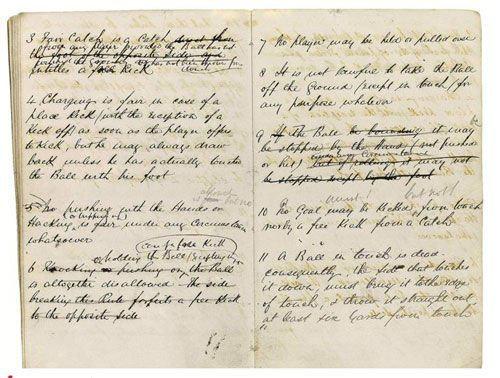 3 Fair Catch is a Catch direct from
from any player provided the Ball has not
the foot of the opposite side and
touched the Ground
entitles a free Kick
4 Charging is fair in case of a
place Kick (with the exception of a
Kick off) as soon as the player offers
to kick, but he may always draw
back unless he has actually touched
the Ball with his foot.
5 No pushing with the Hands or
Hacking, or tripping up is fair under any circumstances
whatsoever
6 Knocking or pushing on the Ball
is altogether disallowed. The side
breaking this Rule forfeits a free Kick
to the opposite side
7 No player may be held or pulled over
8 It is not lawful to take the Ball
off the Ground (except in touch) for
any purpose whatever
9 If the Ball be bounding it may
be stopped by the Hand (not pushed
or hit) but if rolling it may not
be stopped except by the foot
10 No Goal may be kicked from touch
nor by a free kick from a Catch
11 A Ball in touch is dead
consequently, the side that touches
it down, must bring it to the edge
of touch, & throw it straight out,
at least six yards from touch